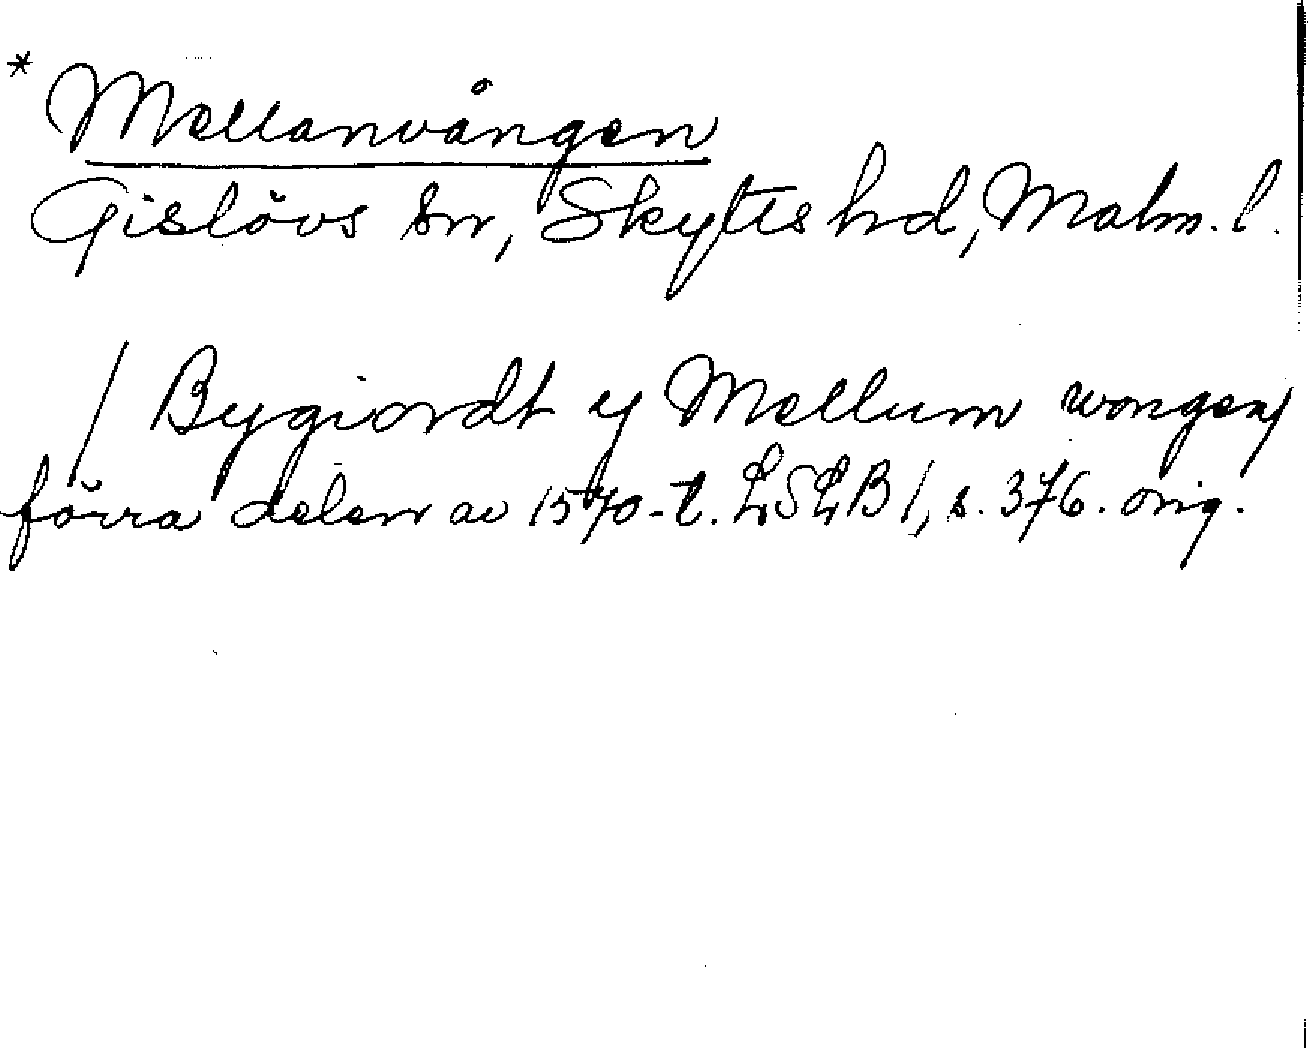 * Mellanvången
Gislövs sn, Skytts hd, Malm. l.
/ Bygiordt y Mellum wongen/
förra delen av 1570-t. LSLB 1, s. 376. orig.